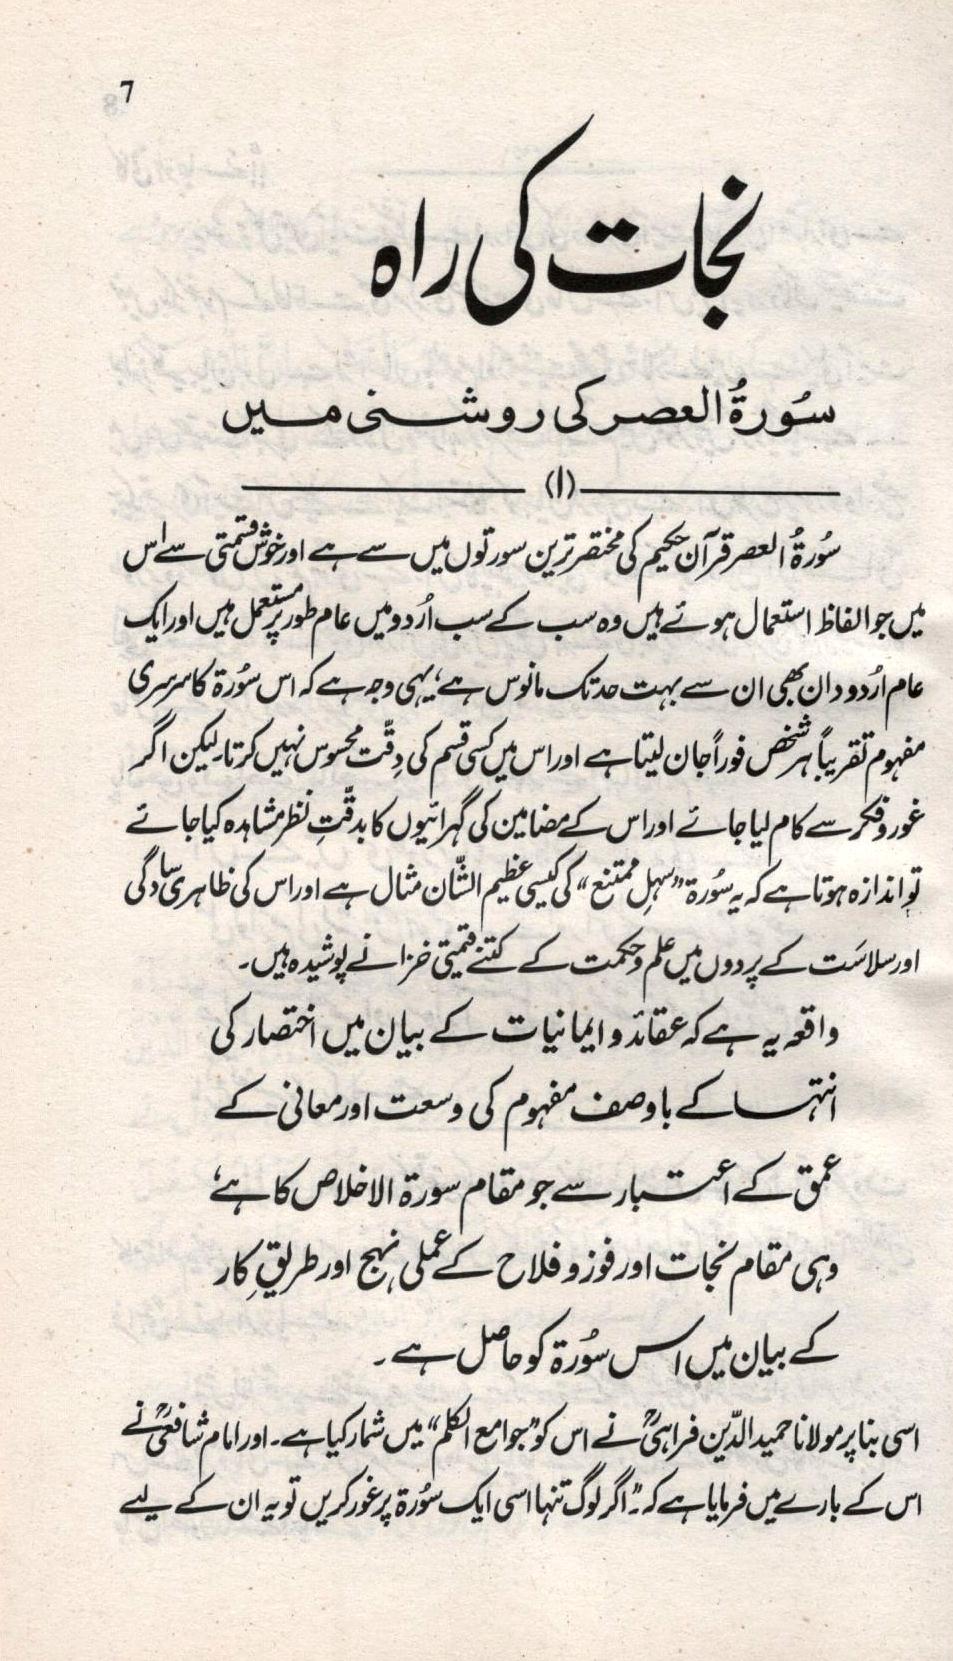 7
نجات کی راہ
سُورۃُ العصر کی روشنی میں
(۱)
سُورۃُ العصر قرآن حکیم کی مختصر ترین سورتوں میں سے ہے اور خوش قسمتی سے اس
میں جو الفاظ استعمال ہوئے ہیں وہ سب کے سب اُردو میں عام طور پر مستعمل ہیں اور ایک
عام اُردو دان بھی ان سے بہت حد تک مانوس ہے، یہی وجہ ہے کہ اس سُورۃ کا سرسری
مفہوم تقریباً ہر شخص فوراً جان لیتا ہے اور اس میں کسی قسم کی دِقّت محسوس نہیں کرتا۔ لیکن اگر
غور و فکر سے کام لیا جائے اور اس کے مضامین کی گہرائیوں کا بدقّتِ نظر مشاہدہ کیا جائے
تو اندازہ ہوتا ہے کہ یہ سُورۃ ”سہلِ ممتنع“ کی کیسی عظیم الشّان مثال ہے اور اس کی ظاہری سادگی
اور سلاسَت کے پردوں میں علم و حکمت کے کتنے قیمتی خزانے پوشیدہ ہیں۔
واقعہ یہ ہے کہ عقائد و ایمانیات کے بیان میں اختصار کی
انتہا کے باوصف مفہوم کی وسعت اور معانی کے
عمق کے اعتبار سے جو مقام سورۃ الاخلاص کا ہے،
وہی مقام نجات اور فوز و فلاح کے عملی نہج اور طریقِ کار
کے بیان میں اس سُورۃ کو حاصل ہے۔
اسی بنا پر مولانا حمید الدّین فراہیؒ نے اس کو ”جوامع الکلم“ میں شمار کیا ہے۔ اور امام شافعیؒ نے
اس کے بارے میں فرمایا ہے کہ: ”اگر لوگ تنہا اسی ایک سُورۃ پر غور کریں تو یہ ان کے لیے